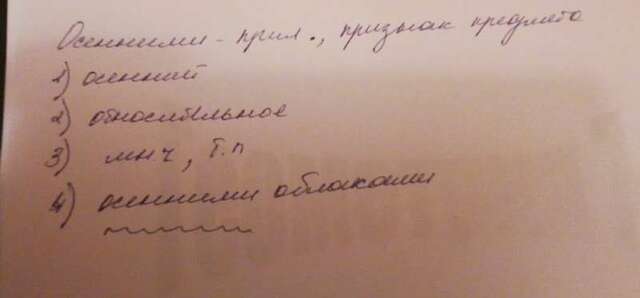 Осенними - прил., признак предмета
1) осенний
2) относительное
3) мн ч, т.п
4) осенними облаками